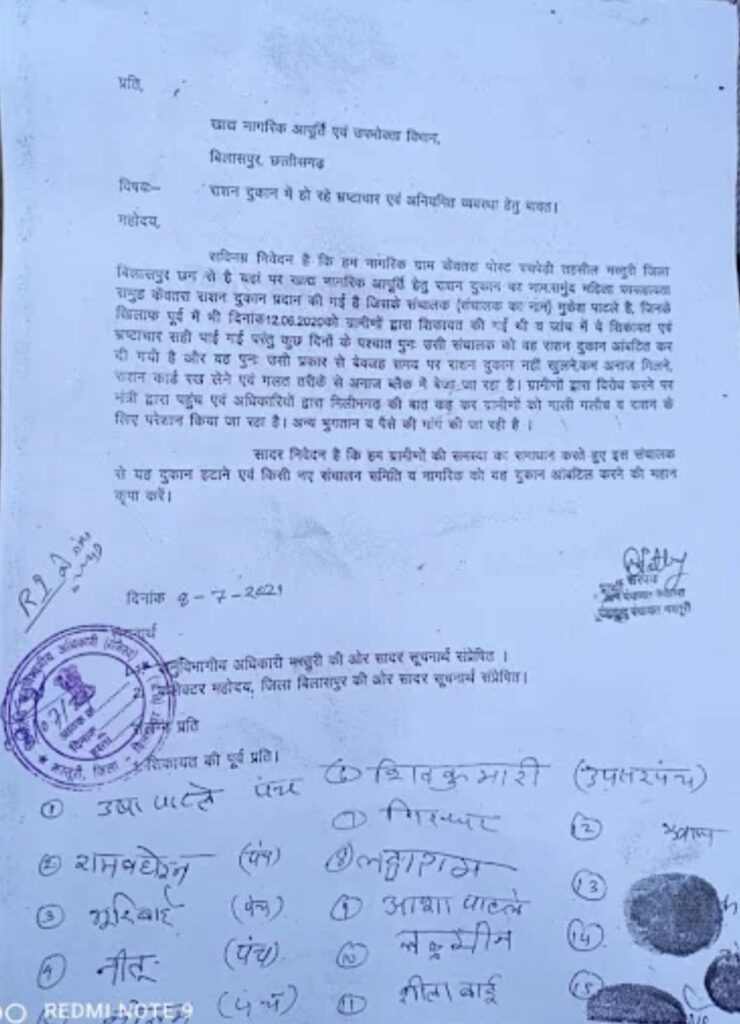 प्रति,
खाद्य नागरिक आपूर्ति एवं उपभोक्ता विभाग,
बिलासपुर, छत्तीसगढ़
विषयः– राशन दुकान में हो रहे भ्रष्टाचार एवं अनियमित व्यवस्था हेतु बावत।
महोदय,
सविनम्र निवेदन है कि हम नागरिक ग्राम केंवतरा पोस्ट तहसील मस्तुरी जिला
बिलासपुर छग से है यहां पर खाद्य नागरिक आपूर्ति हेतु राशन दुकान का नाम महिला
समुह केंवतरा राशन दुकान प्रदान की गई है जिसके संचालक (संचालक का नाम) मुकेश पाटले है, जिनके
खिलाफ पूर्व में भी दिनांक12.06.2020को ग्रामीणों द्वारा शिकायत की गई थी व जांच में ये शिकायत एवं
भ्रष्टाचार सही पाई गई परंतु कुछ दिनों के पश्चात पुनः उसी संचालक को वह राशन दुकान आंबटित कर
दी गयी है और वह पुनः उसी प्रकार से बेवजह समय पर राशन दुकान नहीं खुलने,कम अनाज मिलने,
राशन कार्ड रख लेने एवं गलत तरीके से अनाज ब्लेक में बेजा जा रहा है। ग्रामीणों द्वारा विरोध करने पर
मंत्री द्वारा पहुंच एवं अधिकारियों द्वारा मिलीभगढ़ की बात कह कर ग्रामीणों को गाली गलौच व राशन के
लिए परेशान किया जा रहा है। अन्य भुगतान व पैसे की मांग की जा रही है ।
सादर निवेदन है कि हम ग्रामीणों की समस्या का समाधान करते हुए इस संचालक
से यह दुकान हटाने एवं किसी नए संचालन समिति व नागरिक को यह दुकान आंबटिल करने की महान
कृपा करें।
दिनांक 8-7-2021
अनुविभागीय अधिकारी मस्तुरी की ओर सादर सूचनार्थ संप्रेषित ।
2. कलेक्टर महोदय, जिला बिलासपुर की ओर सादर सूचनार्थ संप्रेषित।
संलग्न प्रति
शिकायत की पूर्व प्रति।
① उषा पाटले पंच
② (पंच)
③ भुरिबाई (पंच)
④ नीतू (पंच)
(पंच)
⑥ शिवकुमारी (उपसरपंच)
⑦ गिरधर
⑧
⑨ आशा पाटले
⑩
⑪ शीला बाई
⑫
⑬
⑭
⑮
REDMI NOTE 9